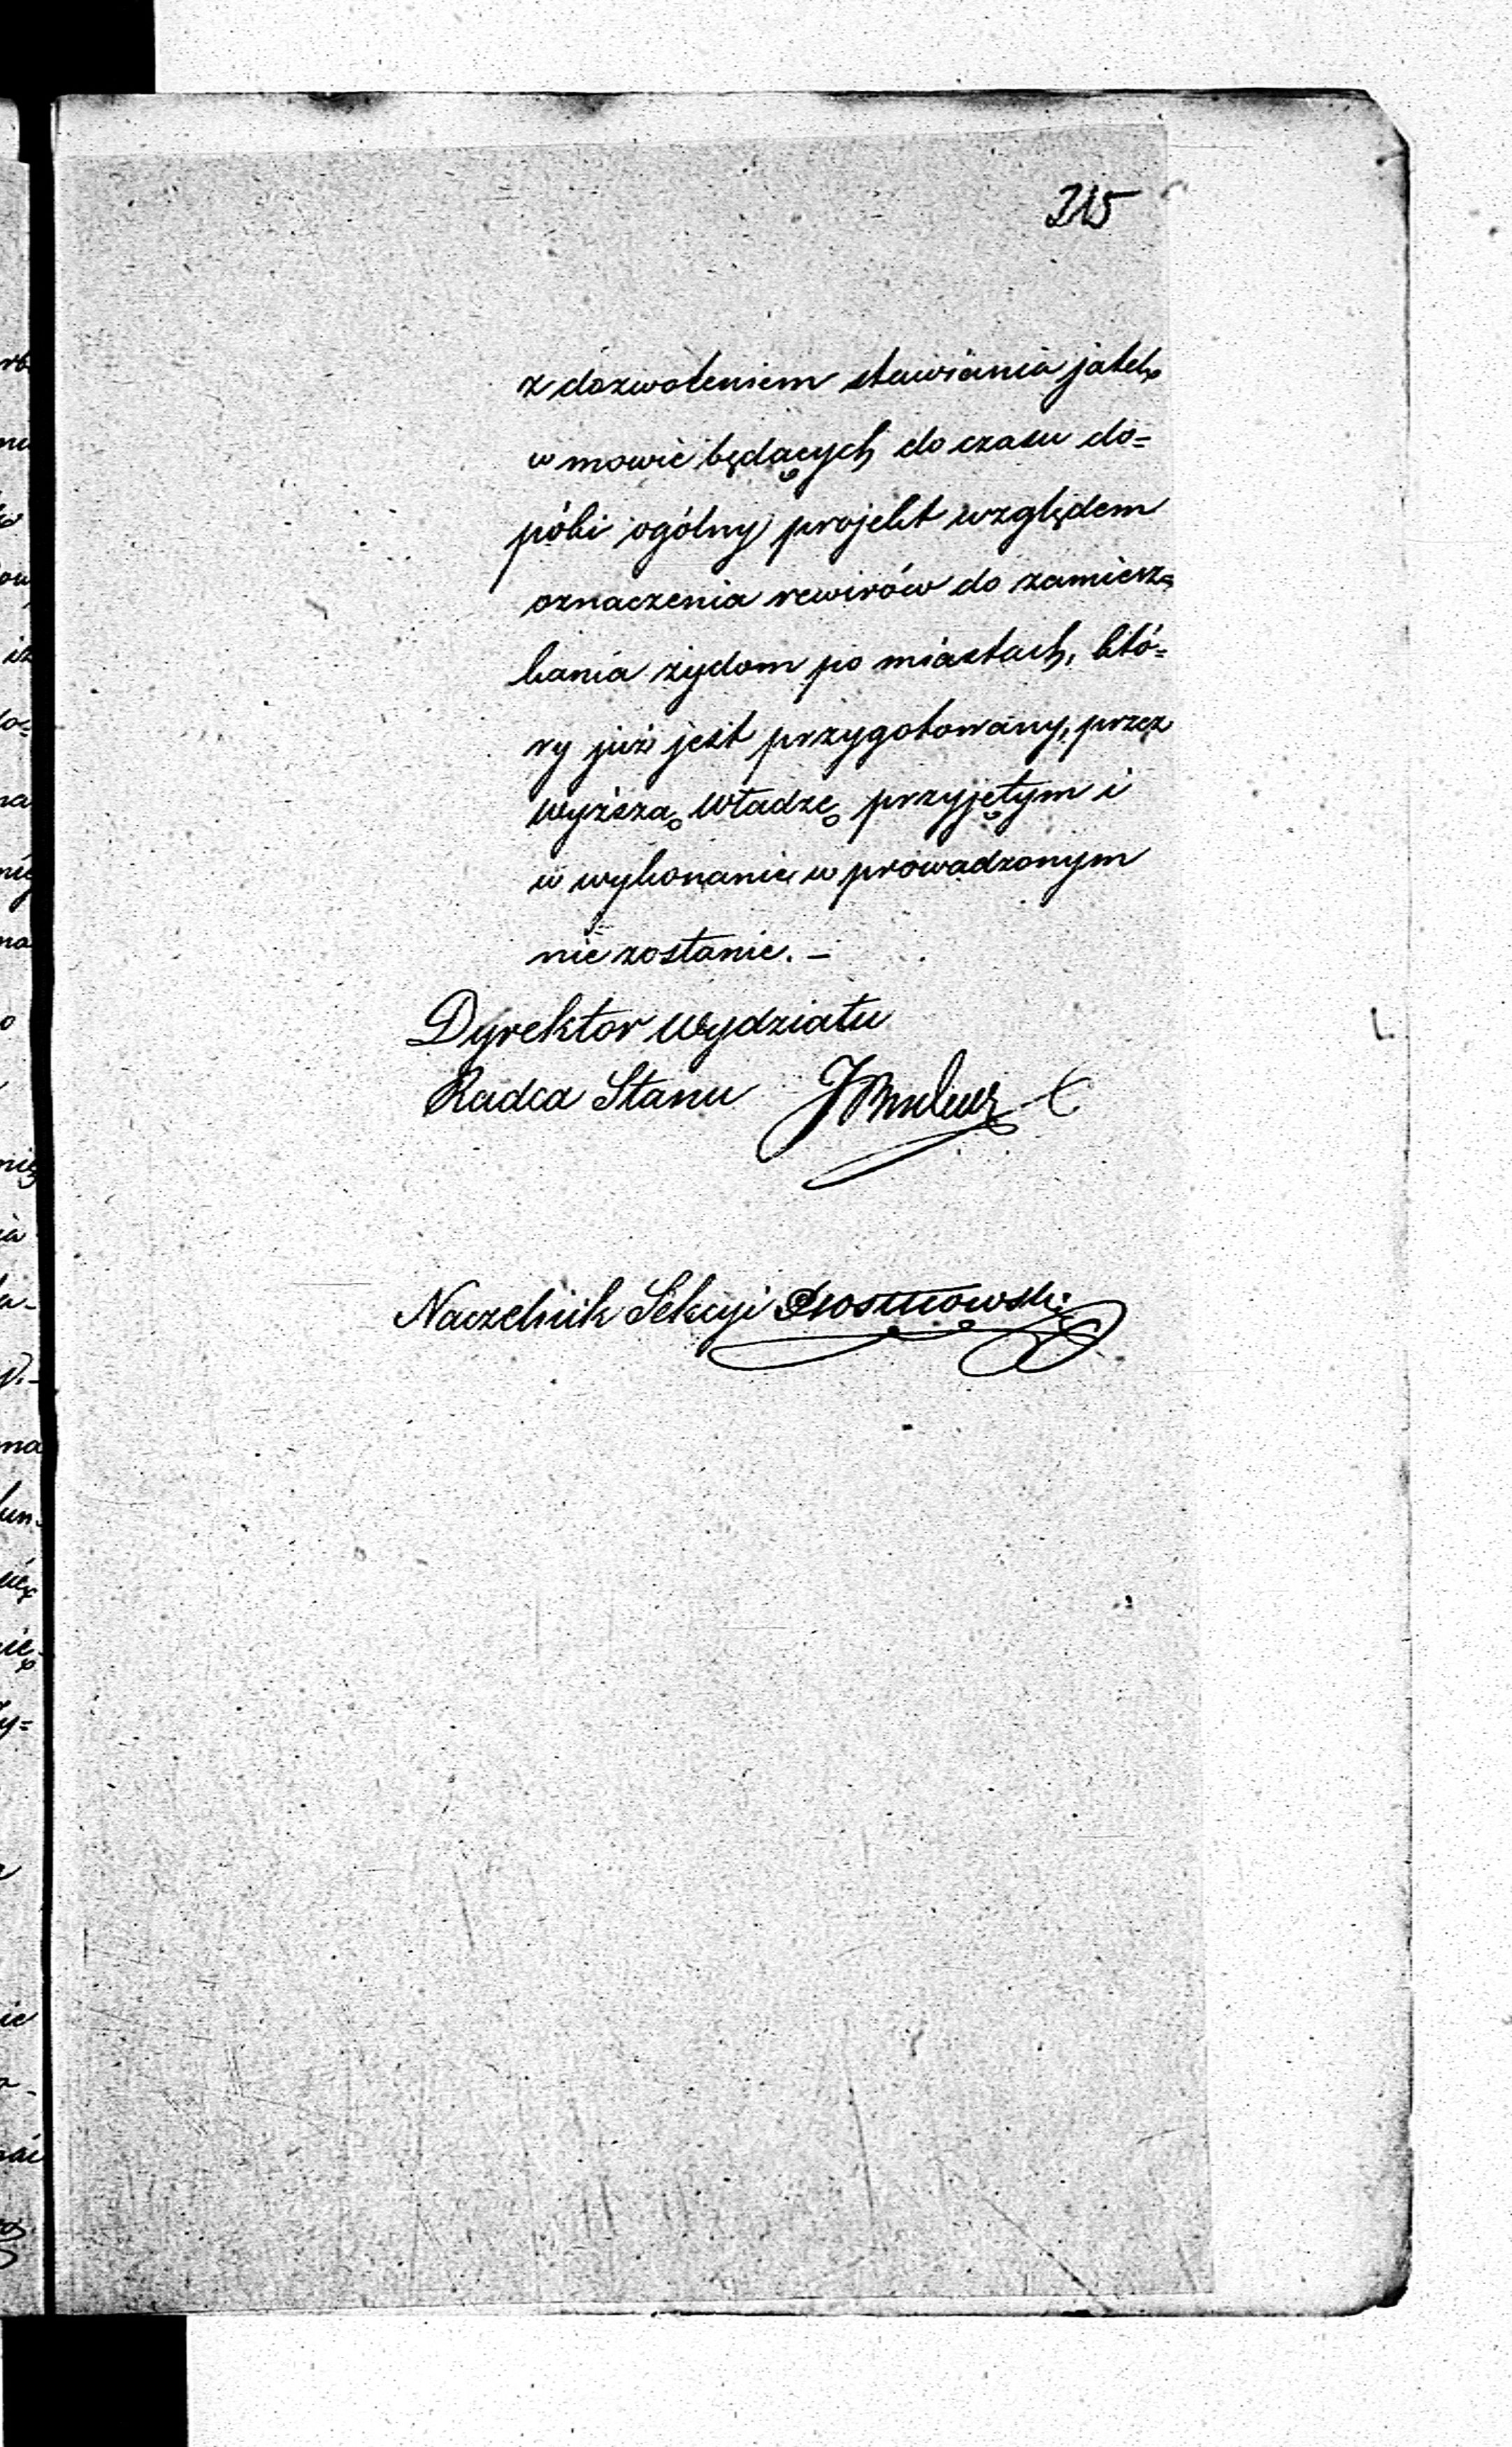 215
z dozwoleniem stawiania jatek
w mowie będących do czasu do=
póki ogólny projekt względem
oznaczenia rewirów do zamiesz=
kania żydom po miastach, któ=
ry już jest przygotowany, przez
wyższą władzę przyjętym i
w wykonanie wprowadzonym
nie zostanie. —
Dyrektor Wydziału
Radca Stanu
Naczelnik Sekcyi